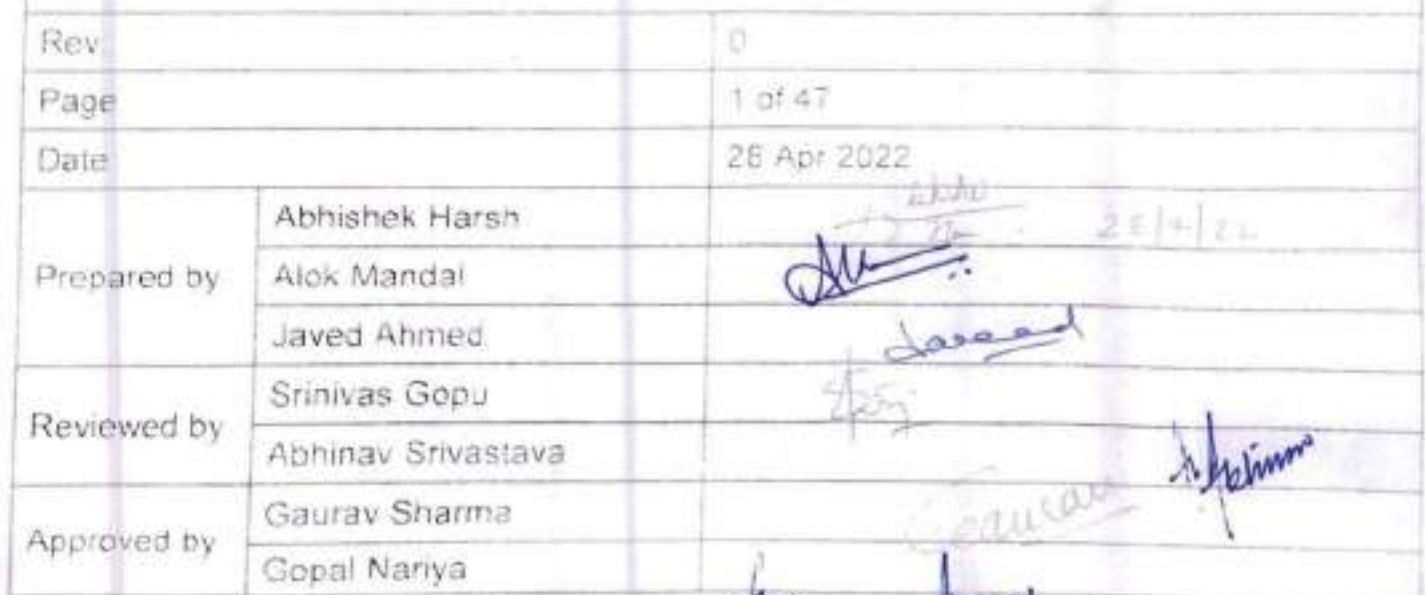 Rev 0
Page 1 of 47
Date 28 Apr 2022
Prepared by
Abhishek Harsh
Alok Mandal
Javed Ahmed
Reviewed by
Srinivas Gopu
Abhinav Srivastava
Approved by
Gaurav Sharma
Gaurav
Gopal Nariya